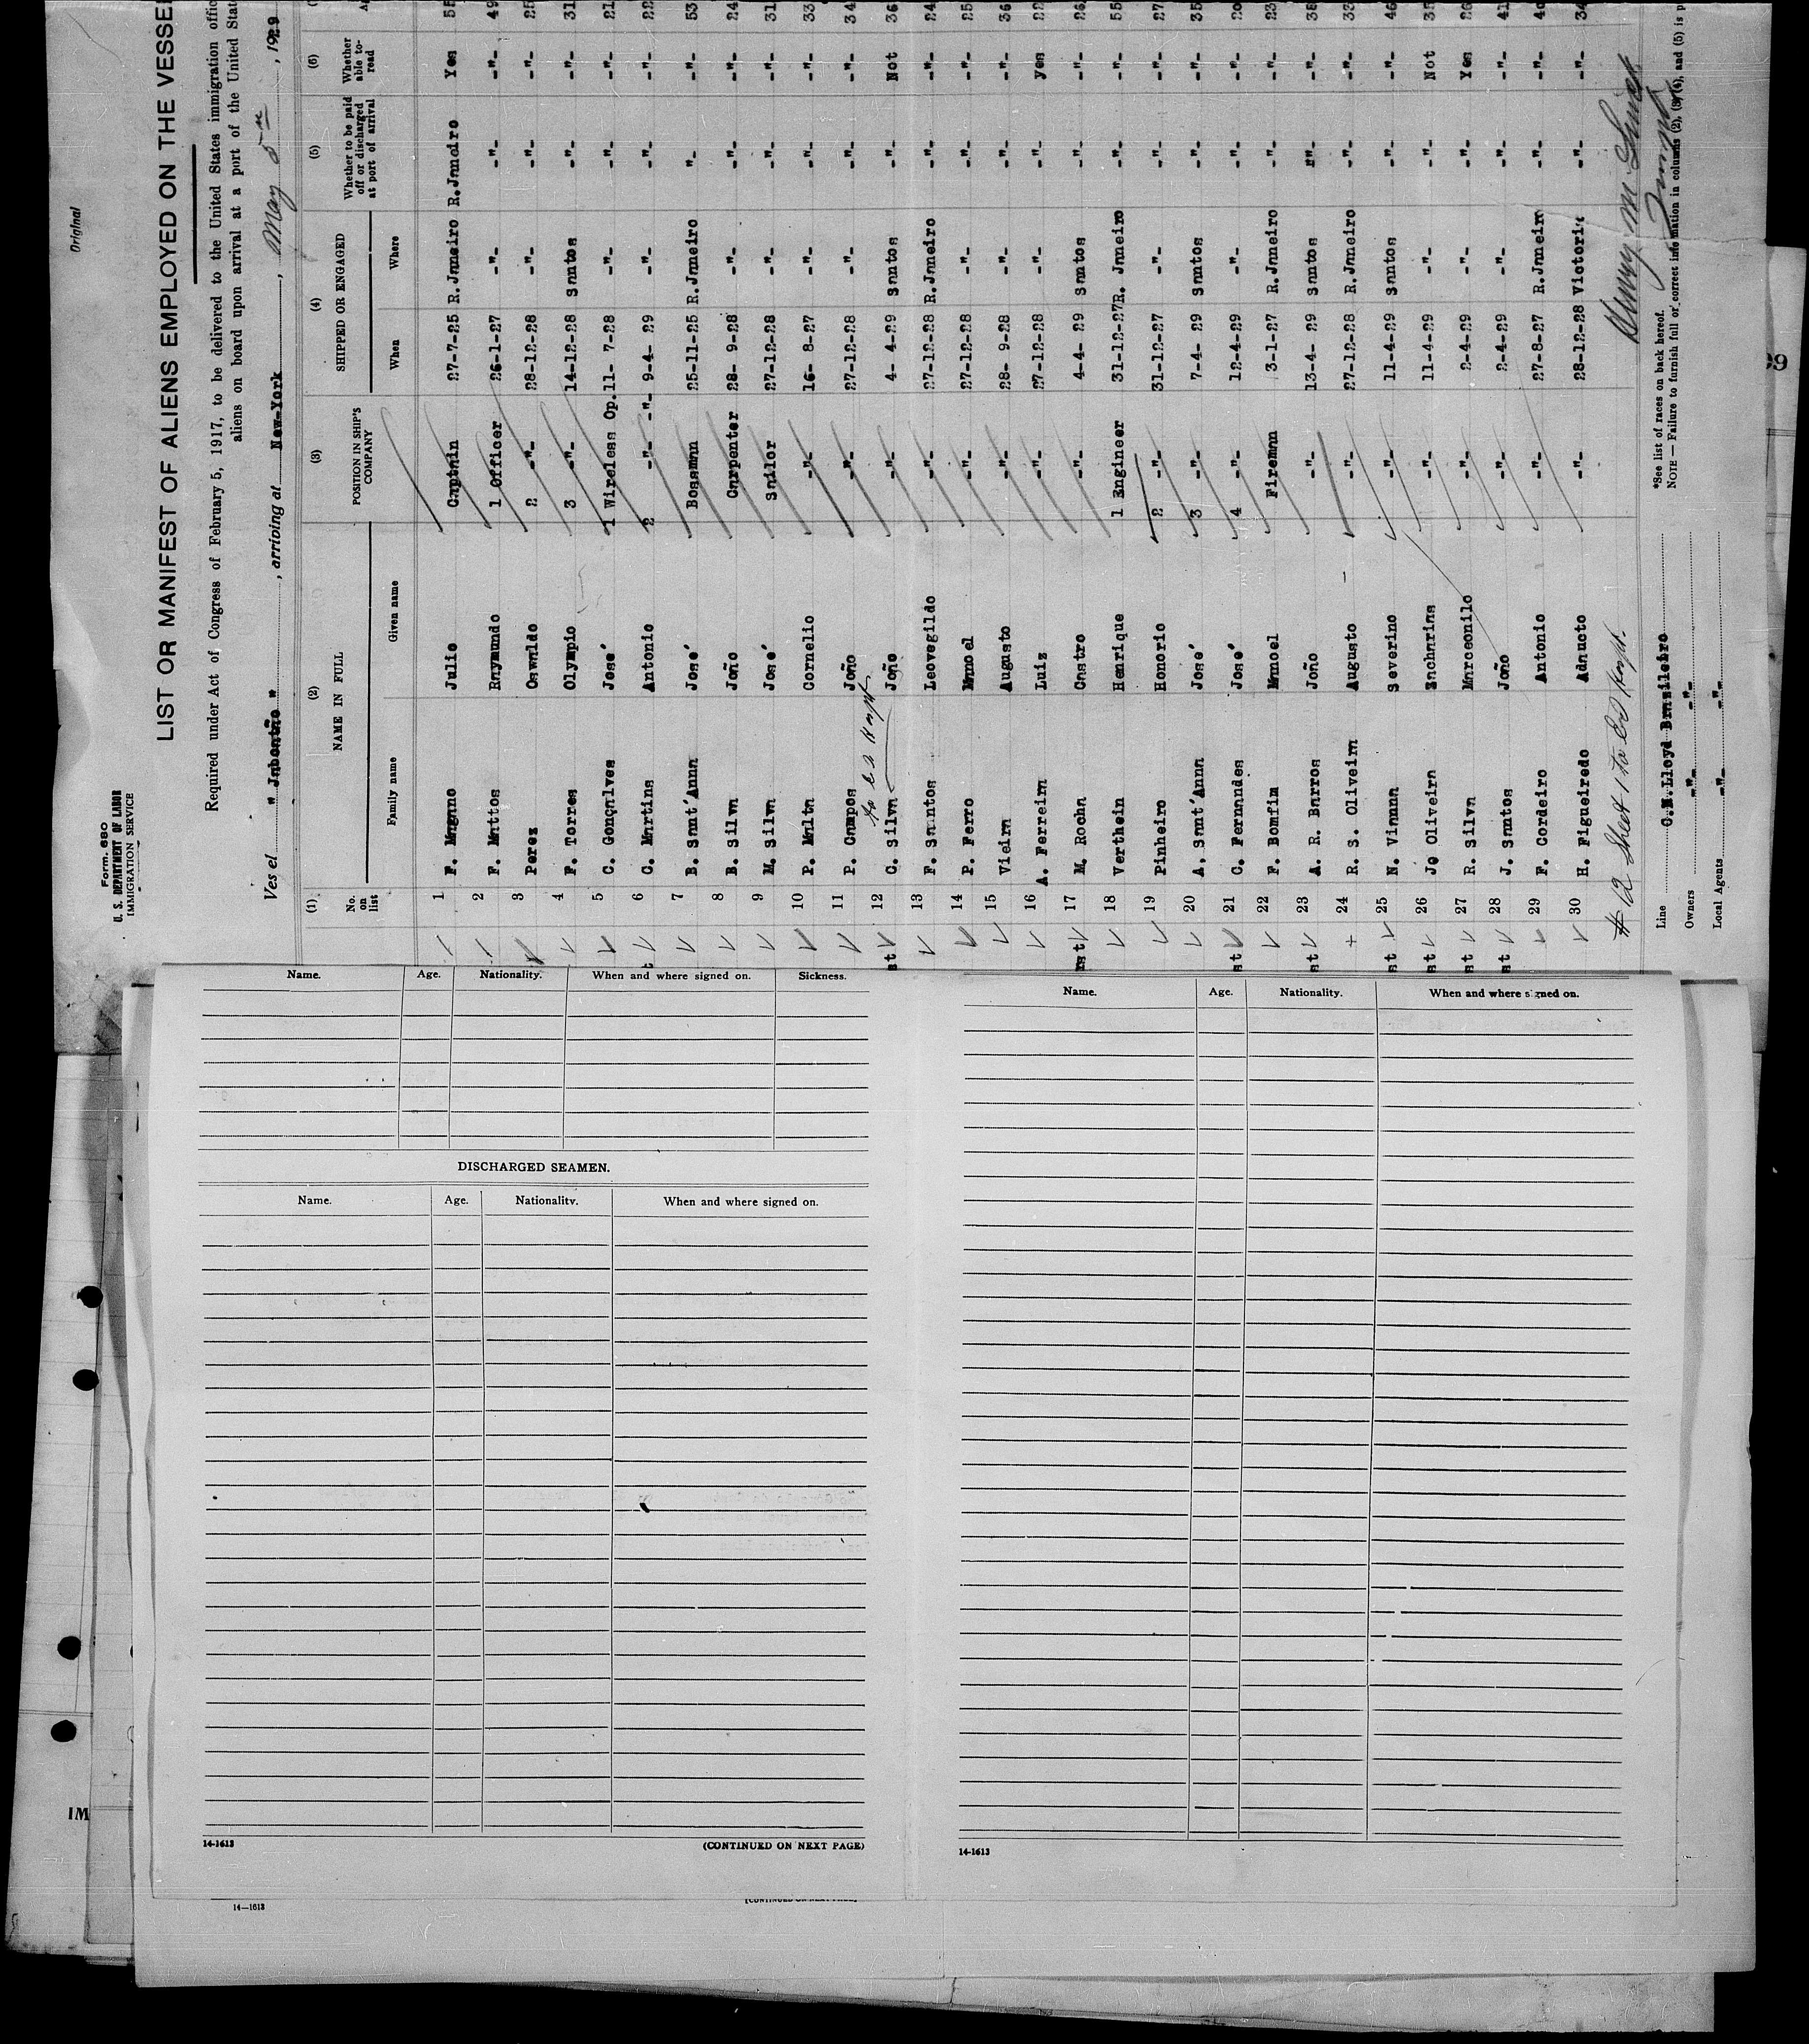 Original
Form 680
U. S. DEPARTMENT OF LABOR
IMMIGRATION SERVICE
LIST OR MANIFEST OF ALIENS EMPLOYED ON THE VESSE
Required under Act of Congress of February 5, 1917, to be delivered to the United States immigration offic
aliens on board upon arrival at a port of the United Stat
Ves el " Jaboatão ", arriving at New-York, May 5th, 1929
(1) (2) (3) (4) (5) (6)
No. on list NAME IN FULL POSITION IN SHIP'S COMPANY SHIPPED OR ENGAGED Whether to be paid off or discharged at port of arrival Whether able to read
Family name Given name When Where
1 F. Magano Julio Captain 27-7-25 R.Janeiro R.Janeiro Yes 55
2 F. Mattos Raymundo 1 Officer 26-1-27 -"- -"- -"- 49
3 Perez Oswaldo 2 -"- 28-12-28 -"- -"- -"- 25
4 F. Torres Olympio 3 -"- 14-12-28 Santos -"- -"- 31
5 C. Gonçalves José 1 Wireless Op. 11- 7-28 -"- -"- -"- 21
6 C. Martins Antonio 2 -"- -"- 9-4- 29 -"- -"- -"- 22
7 B. Sant'Anna José Bossman 25-11-25 R.Janeiro "- -"- 53
8 B. Silva João Carpenter 28- 9-28 -"- -"- -"- 24
9 M. Silva José Sailor 27-12-28 -"- -"- -"- 31
10 P. Malta Cornelio -"- 16- 8-27 -"- -"- -"- 33
11 P. Campos João -"- 27-12-28 -"- -"- -"- 34
12 C. Silva João -"- 4- 4-29 Santos -"- Not 36
13 F. Santos Leovegildo -"- 27-12-28 R.Janeiro -"- -"- 24
14 P. Ferro Manoel -"- 27-12-28 -"- -"- -"- 25
15 Vieira Augusto -"- 28- 9-28 -"- -"- -"- 36
16 A. Ferreira Luiz -"- 27-12-28 -"- -"- yes 22
17 M. Rocha Castro -"- 4-4- 29 Santos -"- -"- 26
18 Verthein Henrique 1 Engineer 31-12-27 R. Janeiro -"- -"- 55
19 Pinheiro Honorio 2 -"- 31-12-27 -"- -"- -"- 27
20 A. Sant'Anna José 3 -"- 7-4- 29 Santos -"- -"- 35
21 C. Fernandes José 4 -"- 12-4-29 -"- -"- -"- 20
22 F. Bomfim Manoel Fireman 3-1-27 R.Janeiro -"- -"- 23
23 A. R. Barros João -"- 13-4- 29 Santos -"- -"- 38
24 R. S. Oliveira Augusto -"- 27-12-28 R.Janeiro -"- -"- 33
25 N. Vianna Severino -"- 11-4-29 Santos -"- -"- 46
26 Jo Oliveira Zacharias -"- 11-4-29 -"- -"- Not 35
27 R. Silva Marceonilo -"- 2-4-29 -"- -"- Yes 26
28 J. Santos João -"- 2-4-29 -"- -"- -"- 41
29 F. Cordeiro Antonio -"- 27-8-27 R.Janeiro -"- -"- 40
30 H. Figueiredo Adaucto -"- 28-12-28 Victoria -"- -"- 34
# 12 Sheet 1
Line C.N.Lloyd Brasileiro
Owners -"- -"-
Local Agents -"- -"-
*See list of races on back hereof.
NOTE — Failure to furnish full or correct information in columns (2), (3), (4), and (5) is p
Name. Age. Nationality. When and where signed on. Sickness.
DISCHARGED SEAMEN.
Name. Age. Nationality. When and where signed on.
14-1613 (CONTINUED ON NEXT PAGE)
Name. Age. Nationality. When and where signed on.
14-1613
14—1613
IM